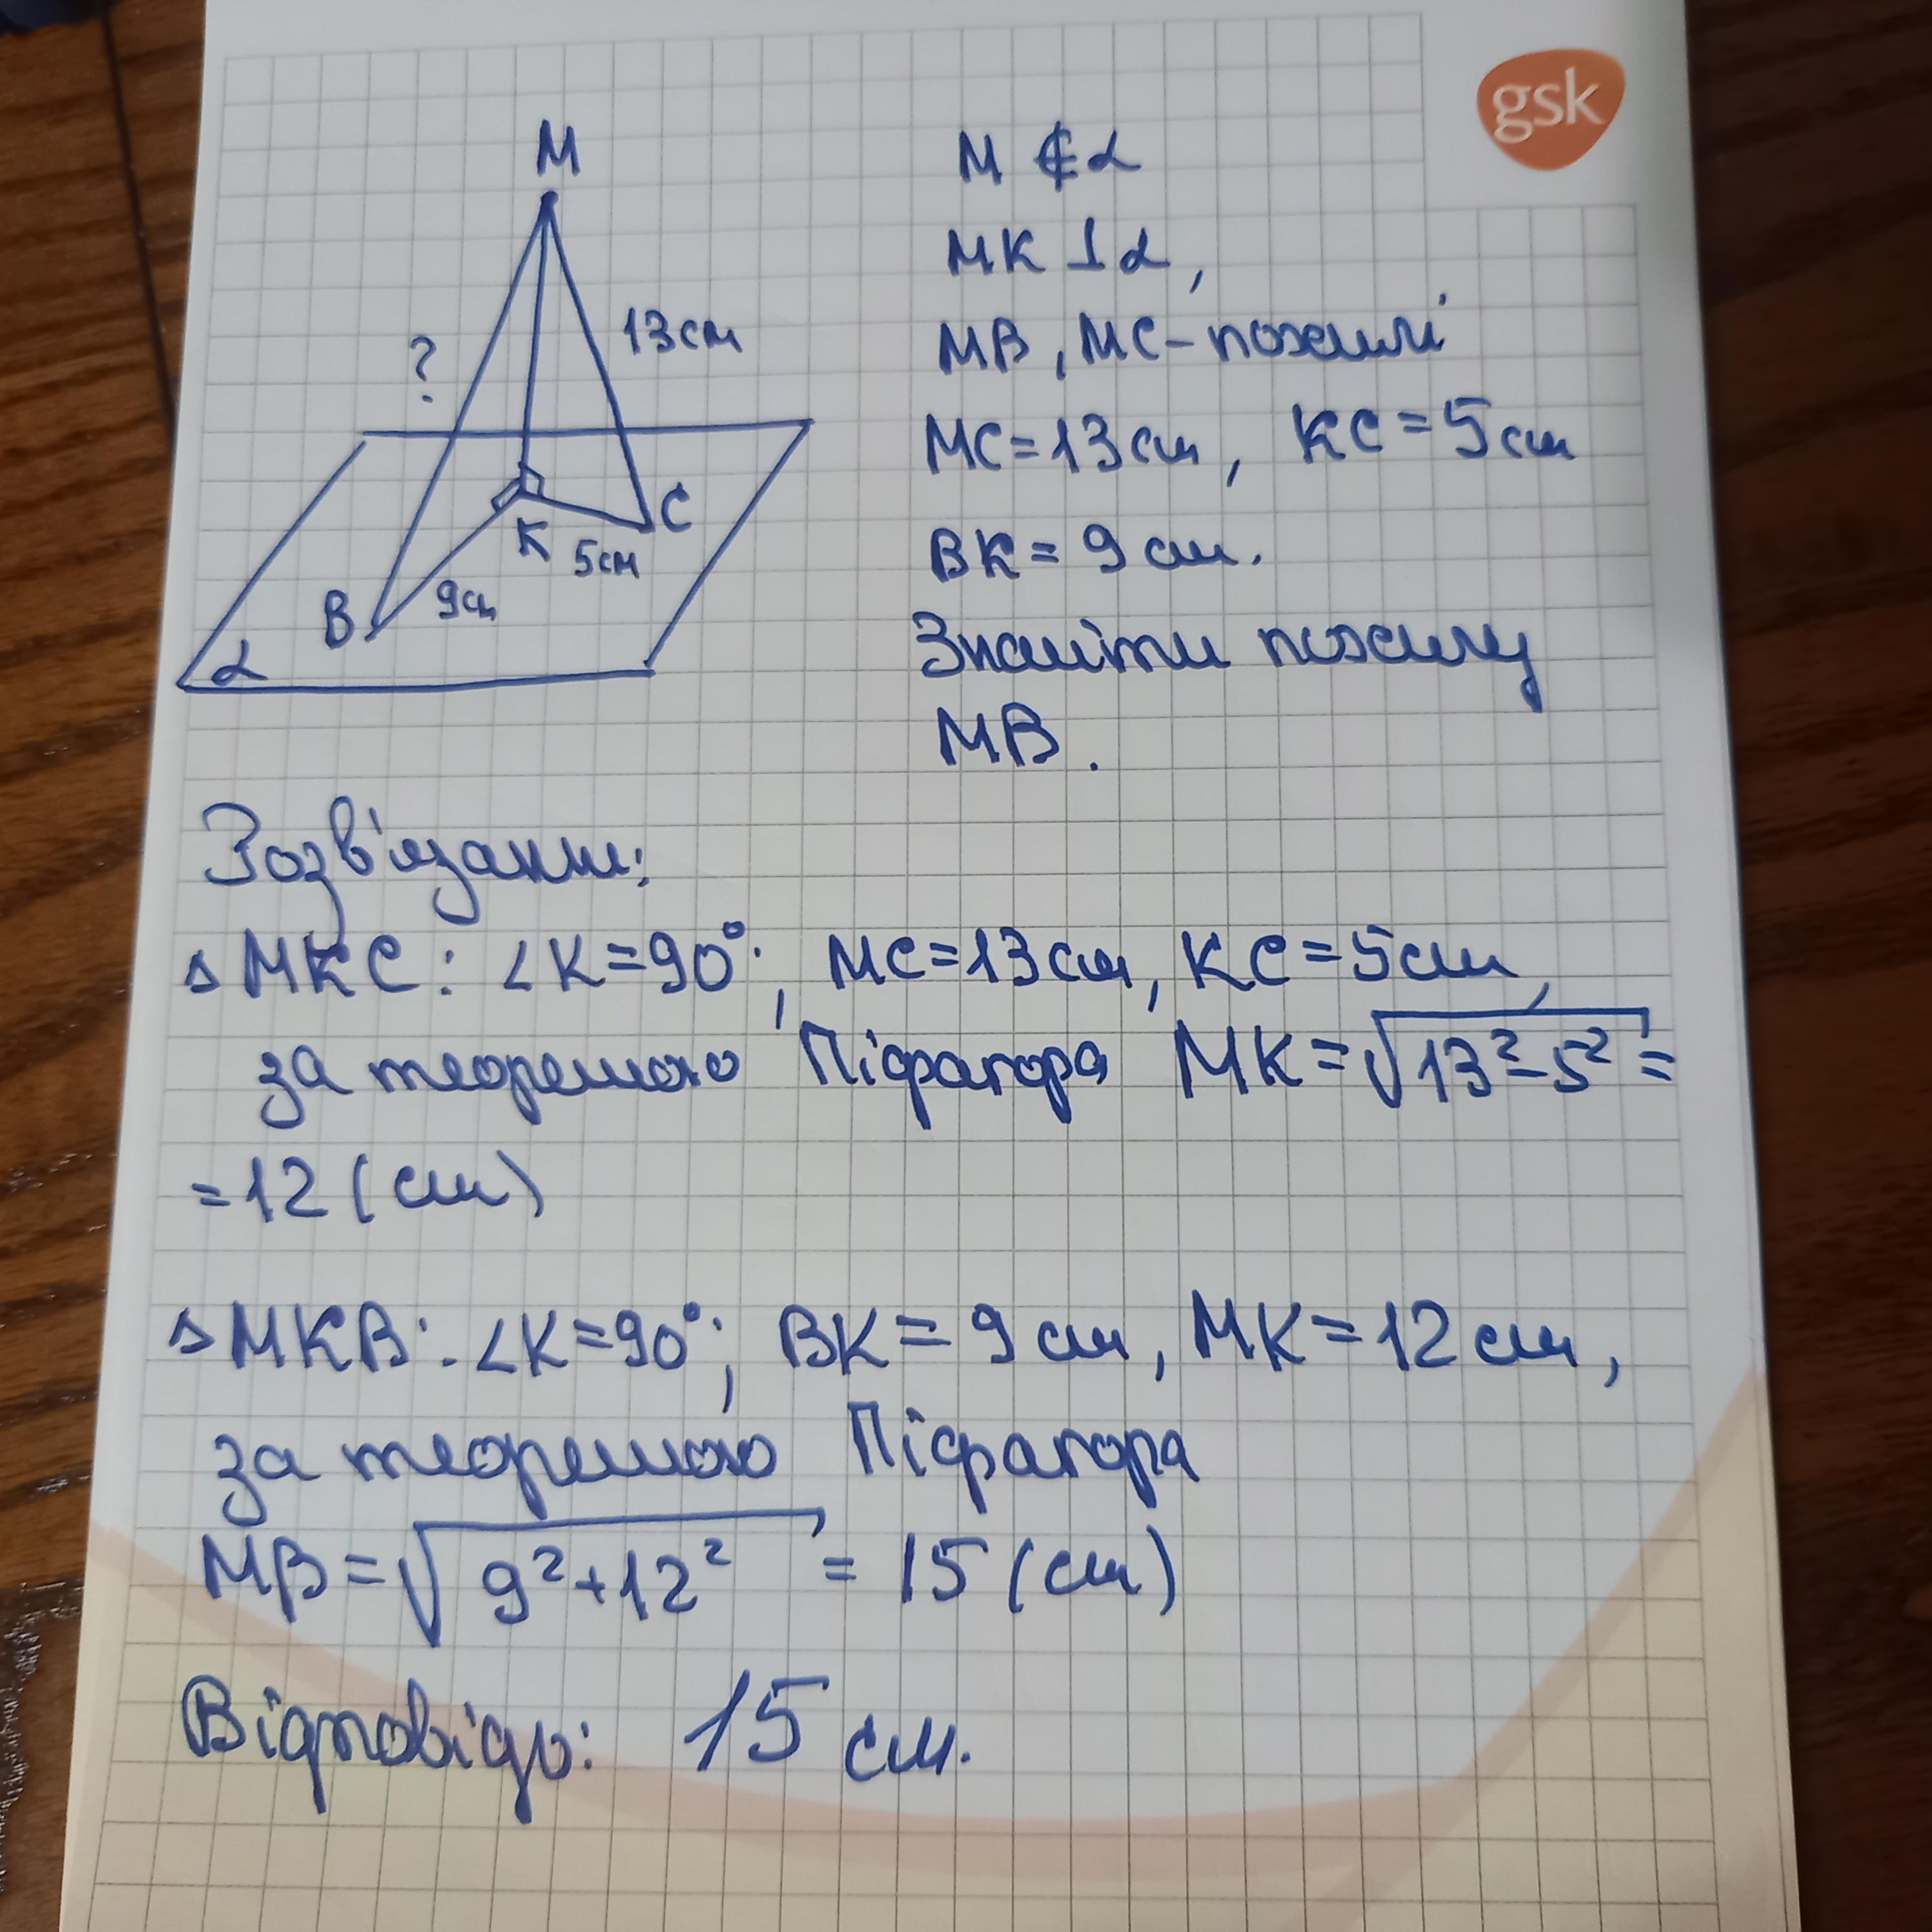 gsk
M
13см
?
C
K
5см
B
9см
α
M ∉ α
MK ⊥ α,
MB, MC - похилі
MC = 13 см, KC = 5 см
BK = 9 см.
Знайти похилу
MB.
Розв'язання:
△MKC: ∠K = 90°; MC = 13 см, KC = 5 см,
за теоремою Піфагора MK = √(13² - 5²) =
= 12 (см)
△MKB: ∠K = 90°; BK = 9 см, MK = 12 см,
за теоремою Піфагора
MB = √(9² + 12²) = 15 (см)
Відповідь: 15 см.